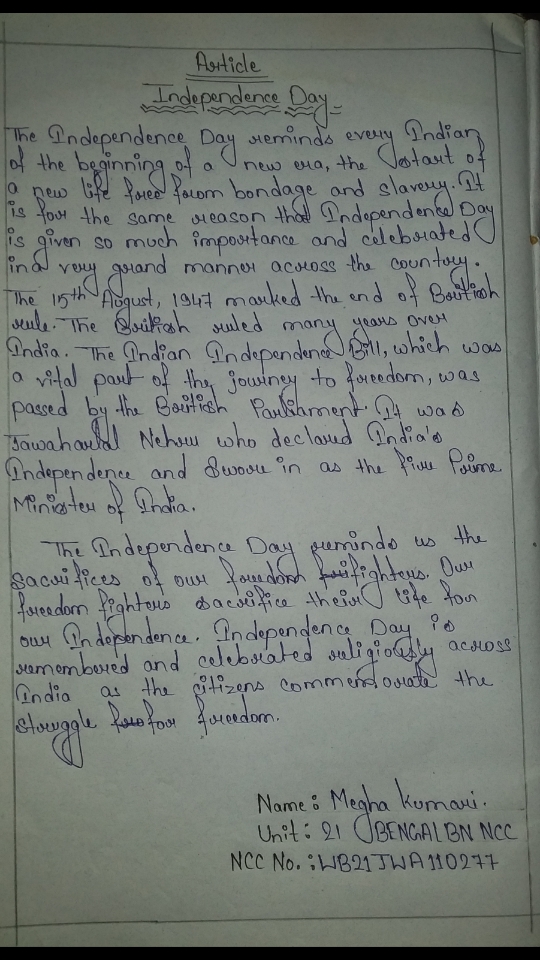 Article
Independence Day
The Independence Day reminds every Indian
of the beginning of a new era, the start of
a new life free from bondage and slavery. It
is for the same reason that Independence Day
is given so much importance and celebrated
in a very grand manner across the country.
The 15th August, 1947 marked the end of British
rule. The British ruled many years over
India. The Indian Independence Bill, which was
a vital part of the journey to freedom, was
passed by the British Parliament. It was
Jawaharlal Nehru who declared India's
Independence and Swore in as the
Prime
Minister of India.
The Independence Day reminds us the
sacrifices of our freedom fighters. Our
freedom fighters sacrifice their life for
our Independence. Independence Day is
remembered and celebrated religiously across
India as the citizens commemorate the
struggle for freedom.
Name: Megha Kumari.
Unit: 21 BENGAL BN NCC
NCC No.: WB21JWA110277